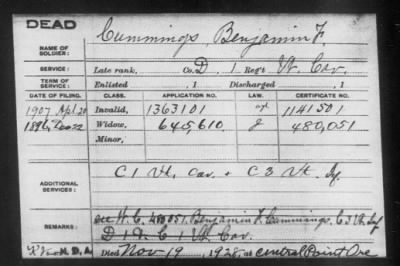 DEAD
NAME OF SOLDIER: Cummings, Benjamin F
SERVICE: Late rank, Co. D, 1 Reg't Vt. Cav.
TERM OF SERVICE: Enlisted , 1 Discharged , 1
DATE OF FILING. CLASS. APPLICATION NO. LAW. CERTIFICATE NO.
1907 Apl. 20 Invalid, 1363101 1141501
Widow, 645,610 480,051
Minor,
ADDITIONAL SERVICES: C 1 Vt. Cav. + C 3 Vt. Inf
REMARKS: see W. C. 480051. Benjamin F. Cummings, C. 3 Vt. Inf
D 1 & C 1 Vt. Cav.
Died Nov 19, 1928, at Central Point Ore